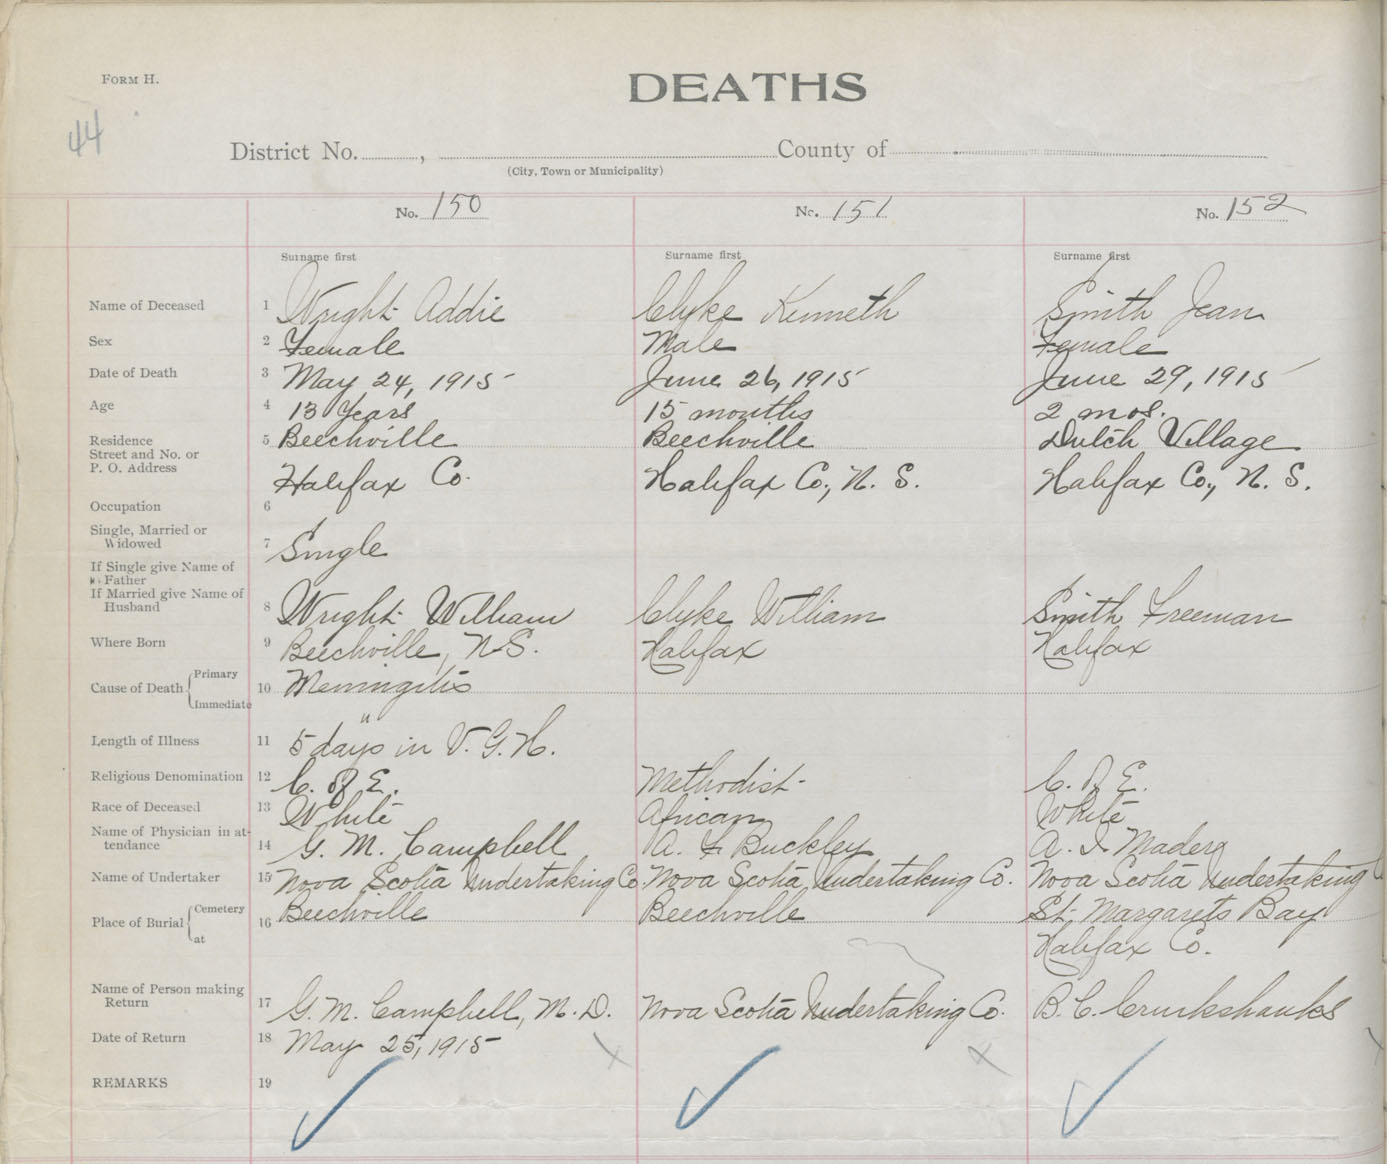 FORM H.
DEATHS
44
District No. , County of
(City, Town or Municipality)
No. 150 No. 151 No. 152
Surname first Surname first Surname first
Name of Deceased 1 Wright Addie Clyke Kenneth Smith Jean
Sex 2 Female Male Female
Date of Death 3 May 24, 1915 June 26, 1915 June 29, 1915
Age 4 13 Years 15 months 2 mos.
Residence 5 Beechville Beechville Dutch Village
Street and No. or
P. O. Address Halifax Co. Halifax Co., N. S. Halifax Co., N. S.
Occupation 6
Single, Married or
Widowed 7 Single
If Single give Name of
Father
If Married give Name of
Husband 8 Wright William Clyke William Smith Freeman
Where Born 9 Beechville, N.S. Halifax Halifax
Cause of Death Primary 10 Meningitis
Immediate "
Length of Illness 11 5 days in V. G. H.
Religious Denomination 12 C. of E. Methodist C. of E.
Race of Deceased 13 White African White
Name of Physician in at-
tendance 14 G. M. Campbell A. F Buckley A. I. Mader
Name of Undertaker 15 Nova Scotia Undertaking Co. Nova Scotia Undertaking Co. Nova Scotia Undertaking C
Place of Burial Cemetery 16 Beechville Beechville St. Margarets Bay
at Halifax Co.
Name of Person making
Return 17 G. M. Campbell, M. D. Nova Scotia Undertaking Co. B. C. Cruikshanks
Date of Return 18 May 25, 1915
REMARKS 19